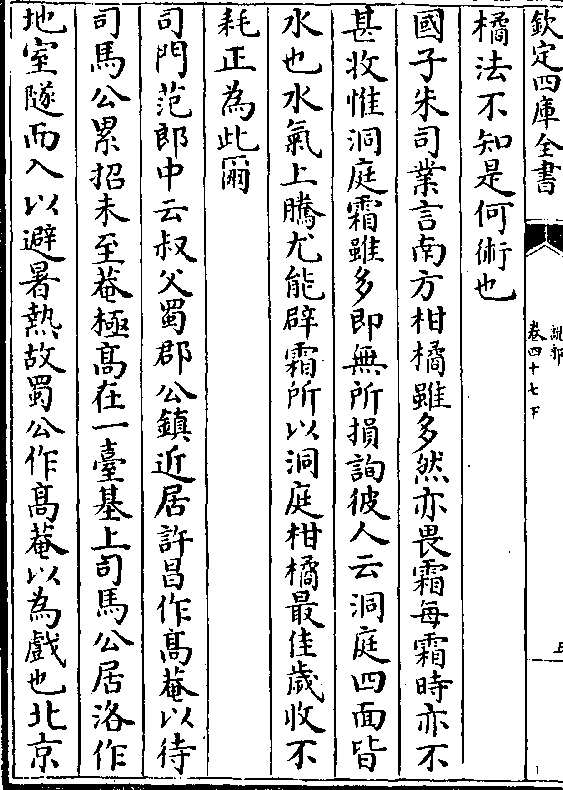 欽定四庫全書
說郛
卷四十七下
橘法不知是何術也
國子朱司業言南方柑橘雖多然亦畏霜每霜時亦不
甚收惟洞庭霜雖多即無所損詢彼人云洞庭四面皆
水也水氣上騰尤能辟霜所以洞庭柑橘最佳歲收不
耗正為此爾
司門范郎中云叔父蜀郡公鎮近居許昌作高菴以待
司馬公累招未至菴極高在一臺基上司馬公居洛作
地室隧而入以避暑熱故蜀公作高菴以為戲也北京